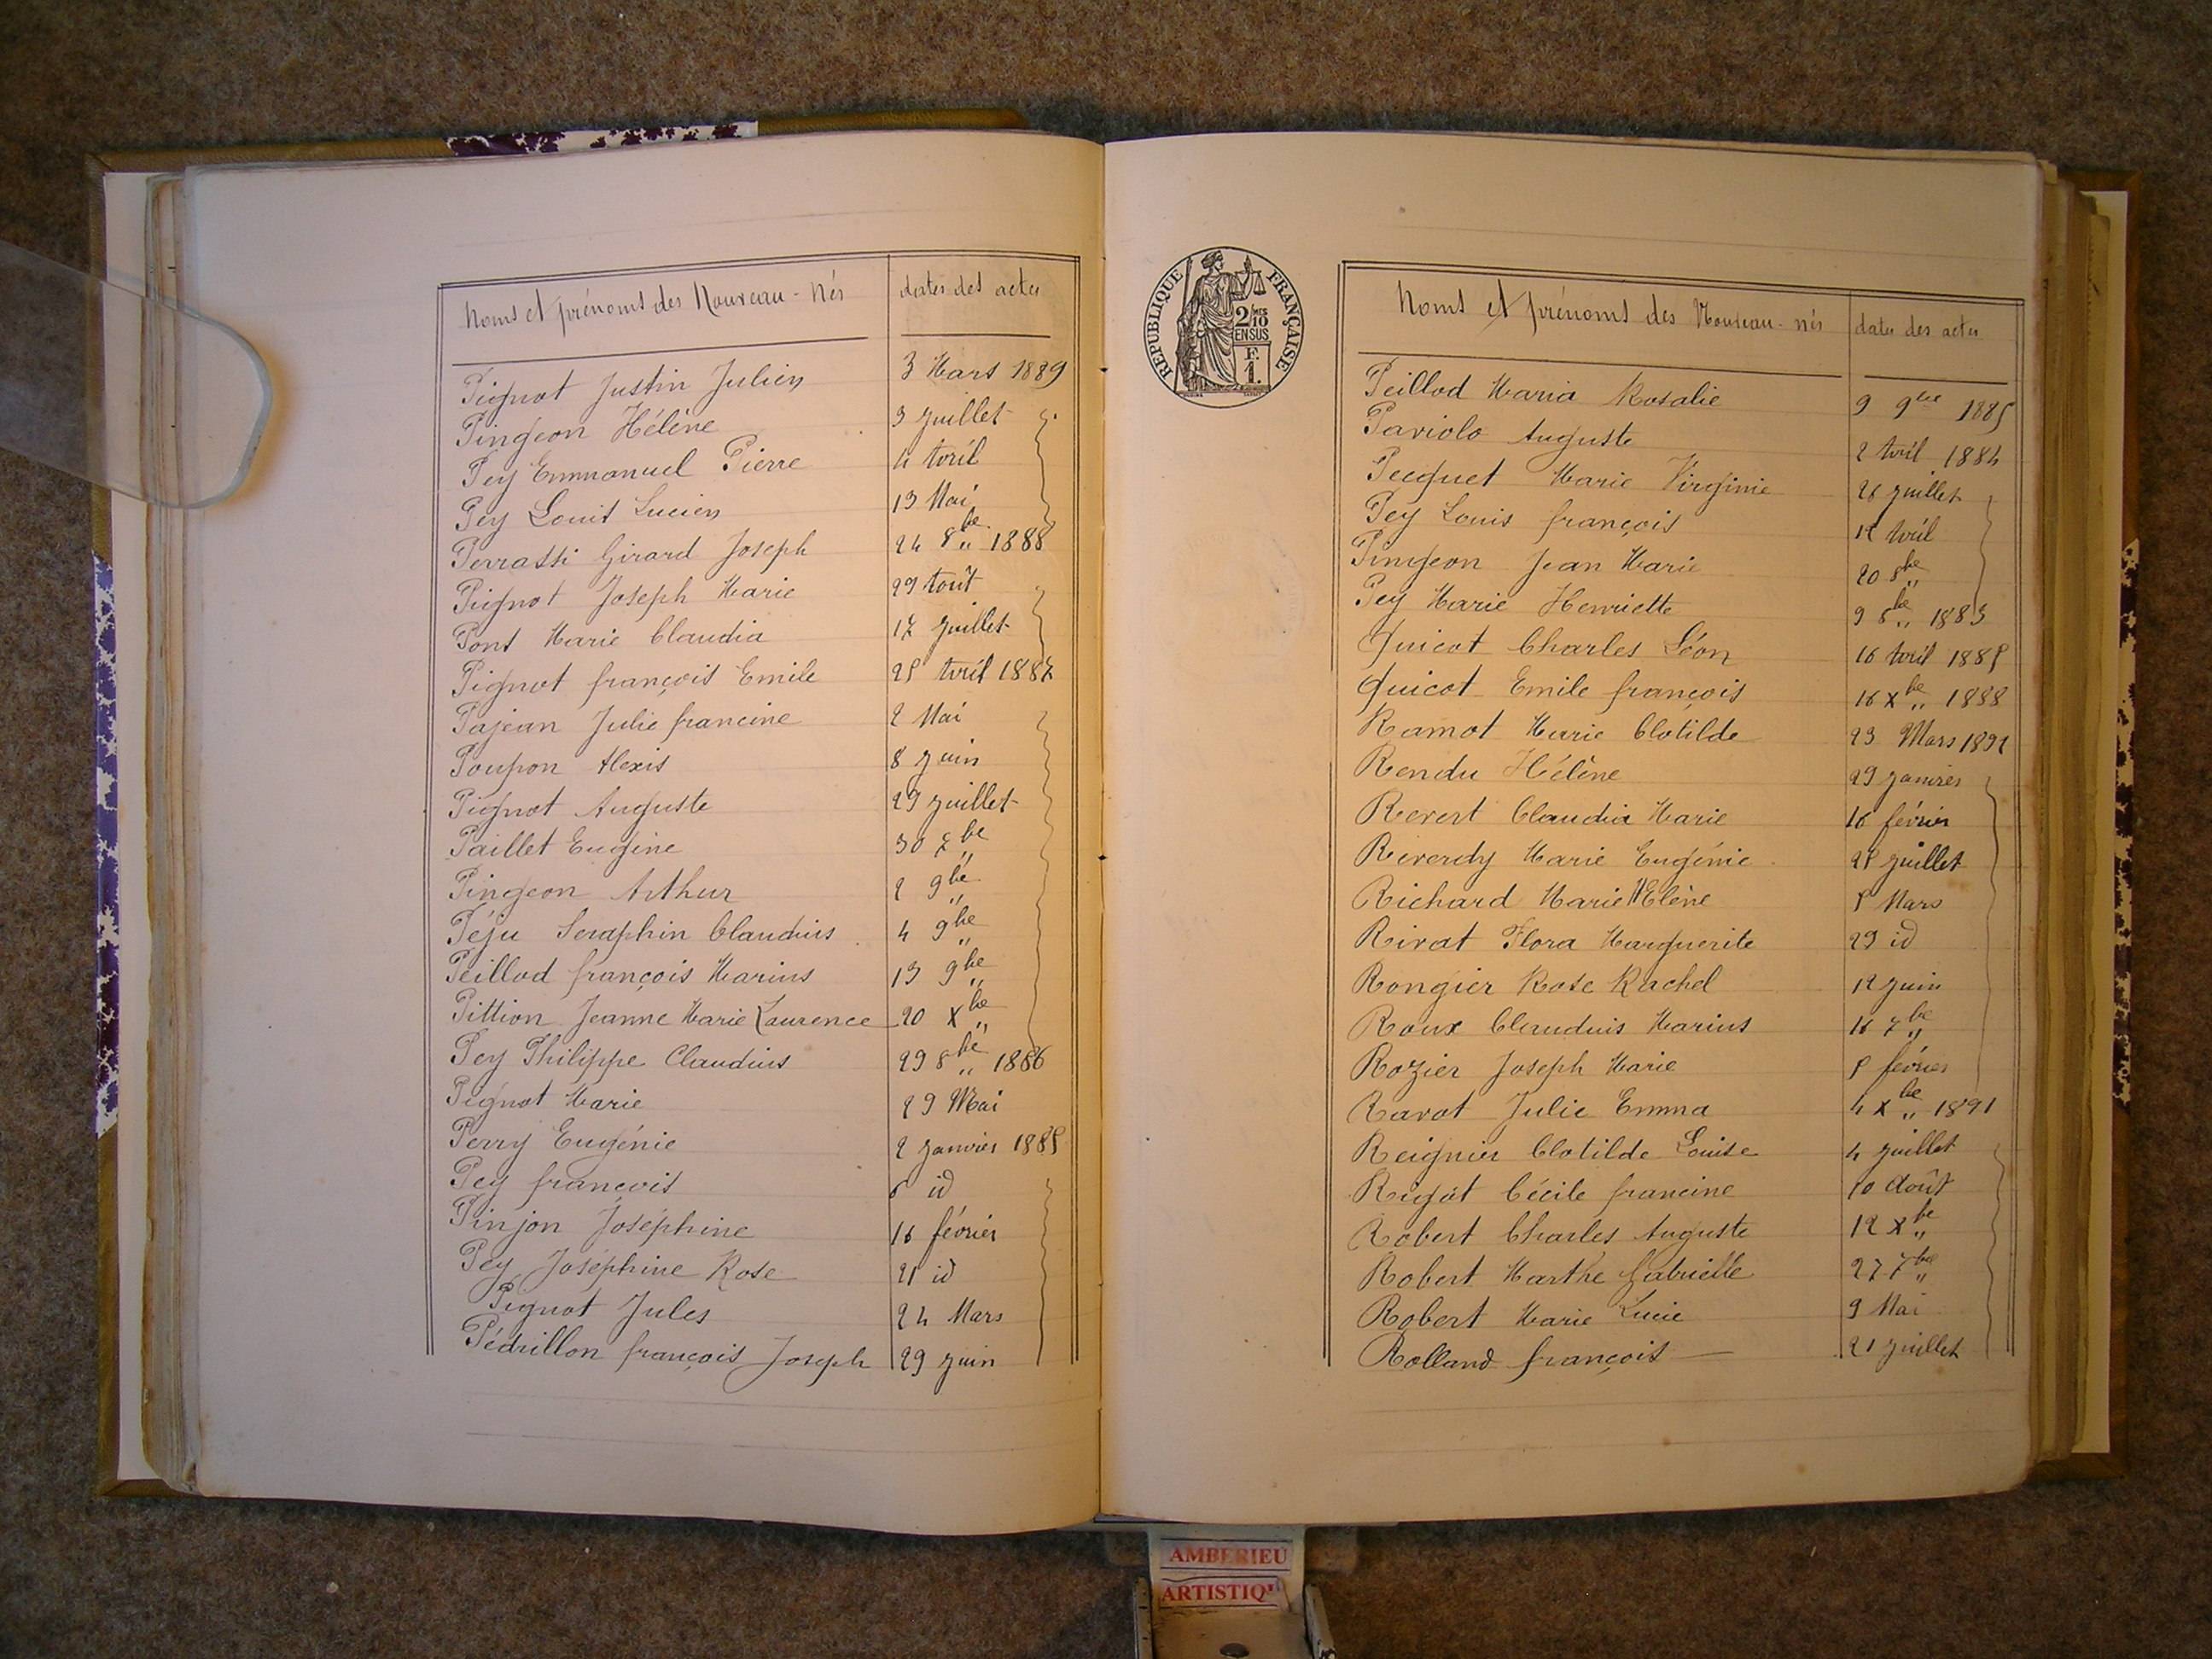 Noms et prénoms des Nouveau-nés dates des actes
Pignot Justin Julien 3 Mars 1889
Pingeon Hélène 3 juillet
Pey Emmanuel Pierre 4 Avril
Pey Louis Lucien 13 Mai
Perrassi Girard Joseph 24 8be 1888
Pignot Joseph Marie 29 Aout
Pont Marie Claudia 17 juillet
Pignot françois Emile 25 Avril 1887
Pajean Julie francine 2 Mai
Poupon Alexis 8 juin
Pignot Auguste 29 juillet
Paillet Eugène 30 7be
Pingeon Arthur 2 9be
Péju Seraphin Claudius 4 9be
Peillod françois Marius 13 9be
Pittion Jeanne Marie Laurence 20 Xbe
Pey Philippe Claudius 29 8be 1886
Pignot Marie 29 Mai
Perry Eugénie 2 janvier 1885
Pey françois 6 id
Pinjon Joséphine 16 février
Pey Joséphine Rose 21 id
Pignot Jules 24 Mars
Pédrillon françois Joseph 29 juin
REPUBLIQUE FRANÇAISE
2/10 MES
EN SUS
F.
1.
Noms et prénoms des Nouveau-nés dates des actes
Peillod Maria Rosalie 9 9bre 1885
Pariolo Auguste 2 Avril 1884
Pecquet Marie Virginie 26 juillet
Pey Louis françois 12 Avril
Pingeon Jean Marie 20 8be
Pey Marie Henriette 9 8be 1883
Quicot Charles Léon 16 Avril 1885
Quicot Emile françois 16 Xbe 1888
Ramot Marie Clotilde 23 Mars 1892
Rendu Hélène 29 janvier
Revert Claudia Marie 16 février
Riverdy Marie Eugénie 25 juillet
Richard Marie Hélène 5 Mars
Rivat Flora Marguerite 29 id
Rongier Rose Rachel 12 juin
Roux Claudius Marius 16 7be
Rozier Joseph Marie 5 février
Ravot Julie Emma 4 Xbe 1891
Reignier Clotilde Louise 4 juillet
Rigat Cécile francine 10 Août
Robert Charles Auguste 12 Xbe
Robert Marthe Gabrielle 27 7be
Robert Marie Lucie 9 Mai
Rolland françois 21 juillet
AMBERIEU
ARTISTIQU